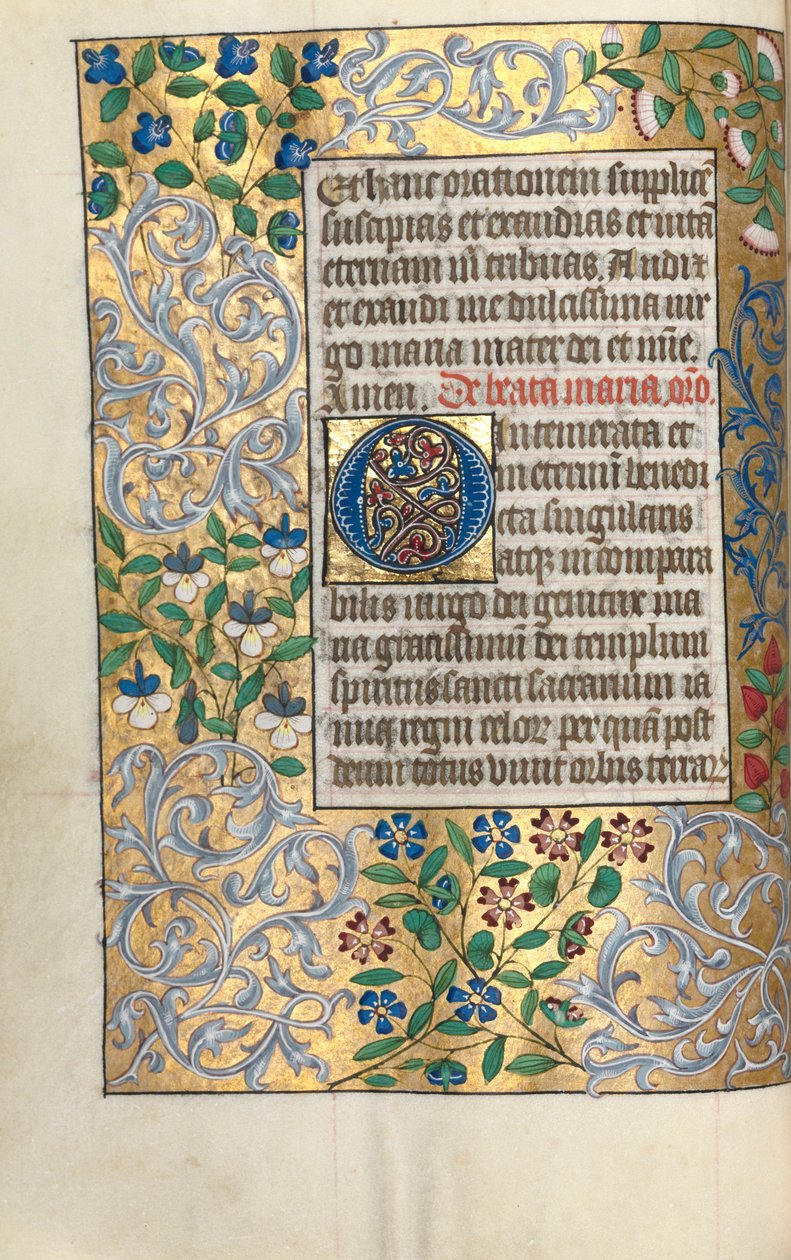 Et hanc orationem supplicē
suscipias et exaudias et uitā
eternam m̄ tribuas. Audi x
et exaudi me dulcissima uir
go maria mater dei et mīe.
Amen. De beata maria orō.
O intemerata et
in eternū benedi
cta singularis
atqꝫ incompara
bilis uirgo dei genitrix ma
ria gratissimū dei templum
spiritus sancti sacrarium ia
nua regni celoꝝ per quā post
deum totus viuit orbis terraꝝ